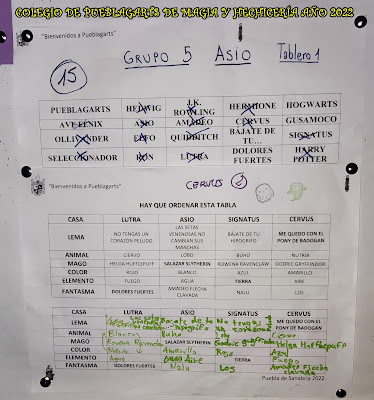 COLEGIO DE PUEBLAGARTS DE MAGIA Y HECHICERÍA AÑO 2022
"Bienvenidos a Pueblagarts"
GRUPO 5 ASIO Tablero 1
15
PUEBLAGARTS HEDWIG J.K. ROWLING HERMIONE HOGWARTS
AVE FENIX ASIO AMADEO CERVUS GUSAMOCO
OLLIVANDER ELFO QUIDDITCH BAJATE DE TU... SIGNATUS
SELECCIONADOR RON LUTRA DOLORES FUERTES HARRY POTTER
"Bienvenidos a Pueblagarts"
CERVUS
HAY QUE ORDENAR ESTA TABLA
CASA LUTRA ASIO SIGNATUS CERVUS
LEMA NO TENGAS UN CORAZÓN PELUDO LAS SETAS VENENOSAS NO CAMBIAN SUS MANCHAS BÁJATE DE TU HIPOGRIFO ME QUEDO CON EL PONY DE BADOGAN
ANIMAL CIERVO LOBO BUHO NUTRIA
MAGO HELGA HUFFLEPUFF SALAZAR SLYTHERIN ROWENA RAVENCLAW GODRIC GRYFFINDOR
COLOR ROJO BLANCO AZUL AMARILLO
ELEMENTO FUEGO AGUA TIERRA AIRE
FANTASMA DOLORES FUERTES AMADEO FLECHA CLAVADA NALU LOS
CASA LUTRA ASIO SIGNATUS CERVUS
LEMA Bájate de tu hipogrifo No tengas un corazón ME QUEDO CON EL PONY DE BADOGAN
ANIMAL Buho
MAGO SALAZAR SLYTHERIN Godric gryffindor Helga Hufflepuff
COLOR Amarillo Rojo Azul
ELEMENTO Agua Aire TIERRA Fuego
FANTASMA DOLORES FUERTES Nalu Los Amadeo Flecha clavada
Puebla de Sanabria 2022